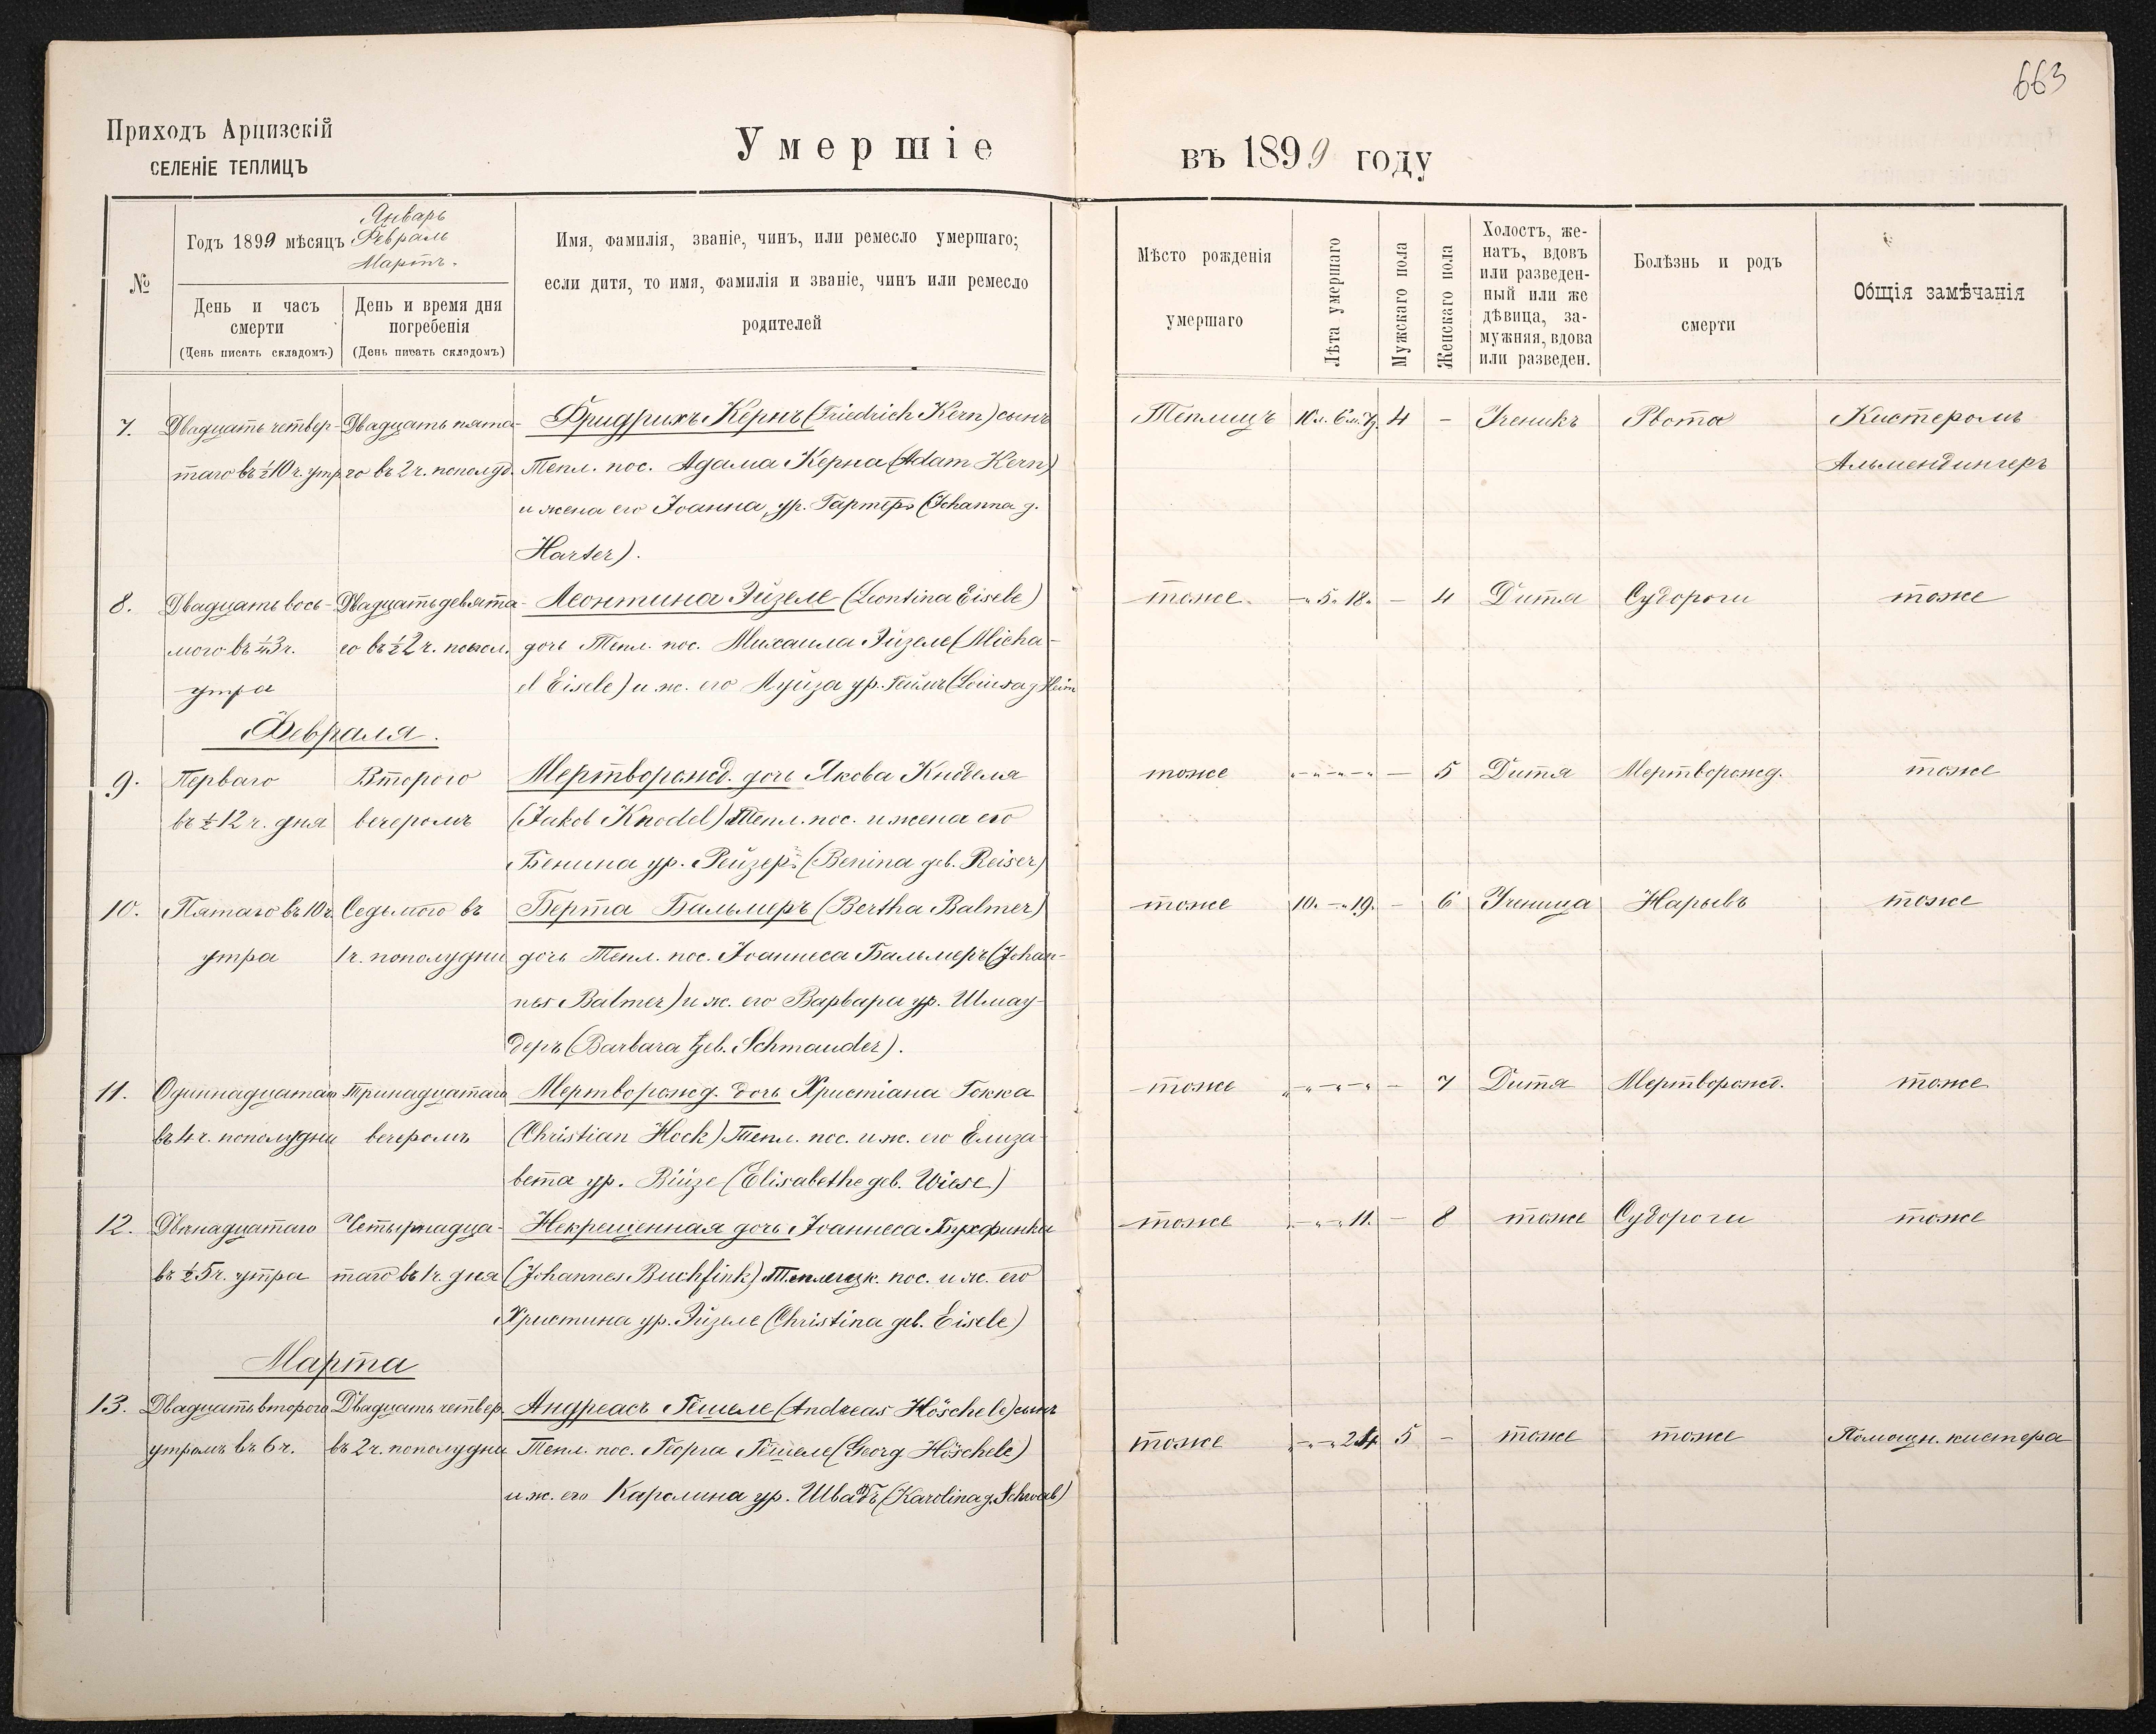 663
Приходъ Арцизскій
СЕЛЕНІЕ ТЕПЛИЦЪ
Умершіе
въ 1899 году
№
Годъ 1899 мѣсяцъ
Январь
Февраль
Мартъ.
День и часъ
смерти
(День писать складомъ)
День и время дня
погребенія
(День писать складомъ)
Имя, фамилія, званіе, чинъ, или ремесло умершаго;
если дитя, то имя, фамилія и званіе, чинъ или ремесло
родителей
Мѣсто рожденія
умершаго
Лѣта умершаго
Мужскаго пола
Женскаго пола
Холостъ, же-
натъ, вдовъ
или разведен-
ный или же
дѣвица, за-
мужняя, вдова
или разведен.
Болѣзнь и родъ
смерти
Общія замѣчанія
7. Двадцать четвер- Двадцать пята- Фридрихъ Кернъ (Friedrich Kern) сынъ Теплицъ 4 - Ученикъ Рвота Кистеромъ
таго въ ½10 ч. утр. го въ 2 ч. пополуд. Тепл. пос. Адама Керна (Adam Kern) Альмендингеръ
и жена его Іоанна, ур. Гартеръ (Johanna g.
Harter).
8. Двадцать вось- Двадцать девята- Леонтина Эйзеле (Leontina Eisele) тоже - " 5 " 18 " - 4 Дитя Судороги тоже
мого въ ½3 ч. го въ ½2 ч. попол. дочь Тепл. пос. Михаила Эйзеле (Micha-
утра el Eisele) и ж. его Луйза ур. Геймъ (Louisa g Heim
Февраля.
9. Перваго Второго Мертворожд. дочь Якова Кнделя тоже " - " - " - " - 5 Дитя Мертворожд. тоже
въ ½12 ч. дня вечеромъ (Jakob Knodel) Тепл. пос. и жена его
Бенина ур. Рейзеръ (Benina geb. Reiser)
10. Пятаго въ 10 ч. Седьмого въ Берта Бальмеръ (Bertha Balmer) тоже 10. - " 19. - 6 Ученица Нарывъ тоже
утра 1 ч. пополудни дочь Тепл. пос. Іоаннеса Бальмеръ (Johan-
nes Balmer) и ж. его Варвара ур. Шмау-
деръ (Barbara geb. Schmauder).
11. Одиннадцатаго Тринадцатаго Мертворожд. дочь Христіана Гокка тоже " - " - " - 7 Дитя Мертворожд. тоже
въ 4 ч. пополудни вечеромъ (Christian Hock) Тепл. пос. и ж. его Елиза-
вета ур. Визе (Elisabethe geb. Wiese)
12. Двѣнадцатаго Четырнадца- Некрещенная дочь Іоаннеса Бухфинка тоже " - " - " 11. - 8 тоже Судороги тоже
въ ½5 ч. утра таго въ 1 ч. дня (Johannes Buchfink) Теплицк. пос. и ж. его
Христина ур. Эйзеле (Christina geb. Eisele)
Марта
13. Двадцать второго Двадцать четвер. Андреасъ Гешеле (Andreas Höschele) сынъ
утромъ въ 6 ч. въ 2 ч. пополудни Тепл. пос. Георга Гешеле (Georg Höschele) тоже " - " - " 24 5 - тоже тоже Помощн. кистера
и ж. его Каролина ур. Швабъ (Karolina g. Schwab)